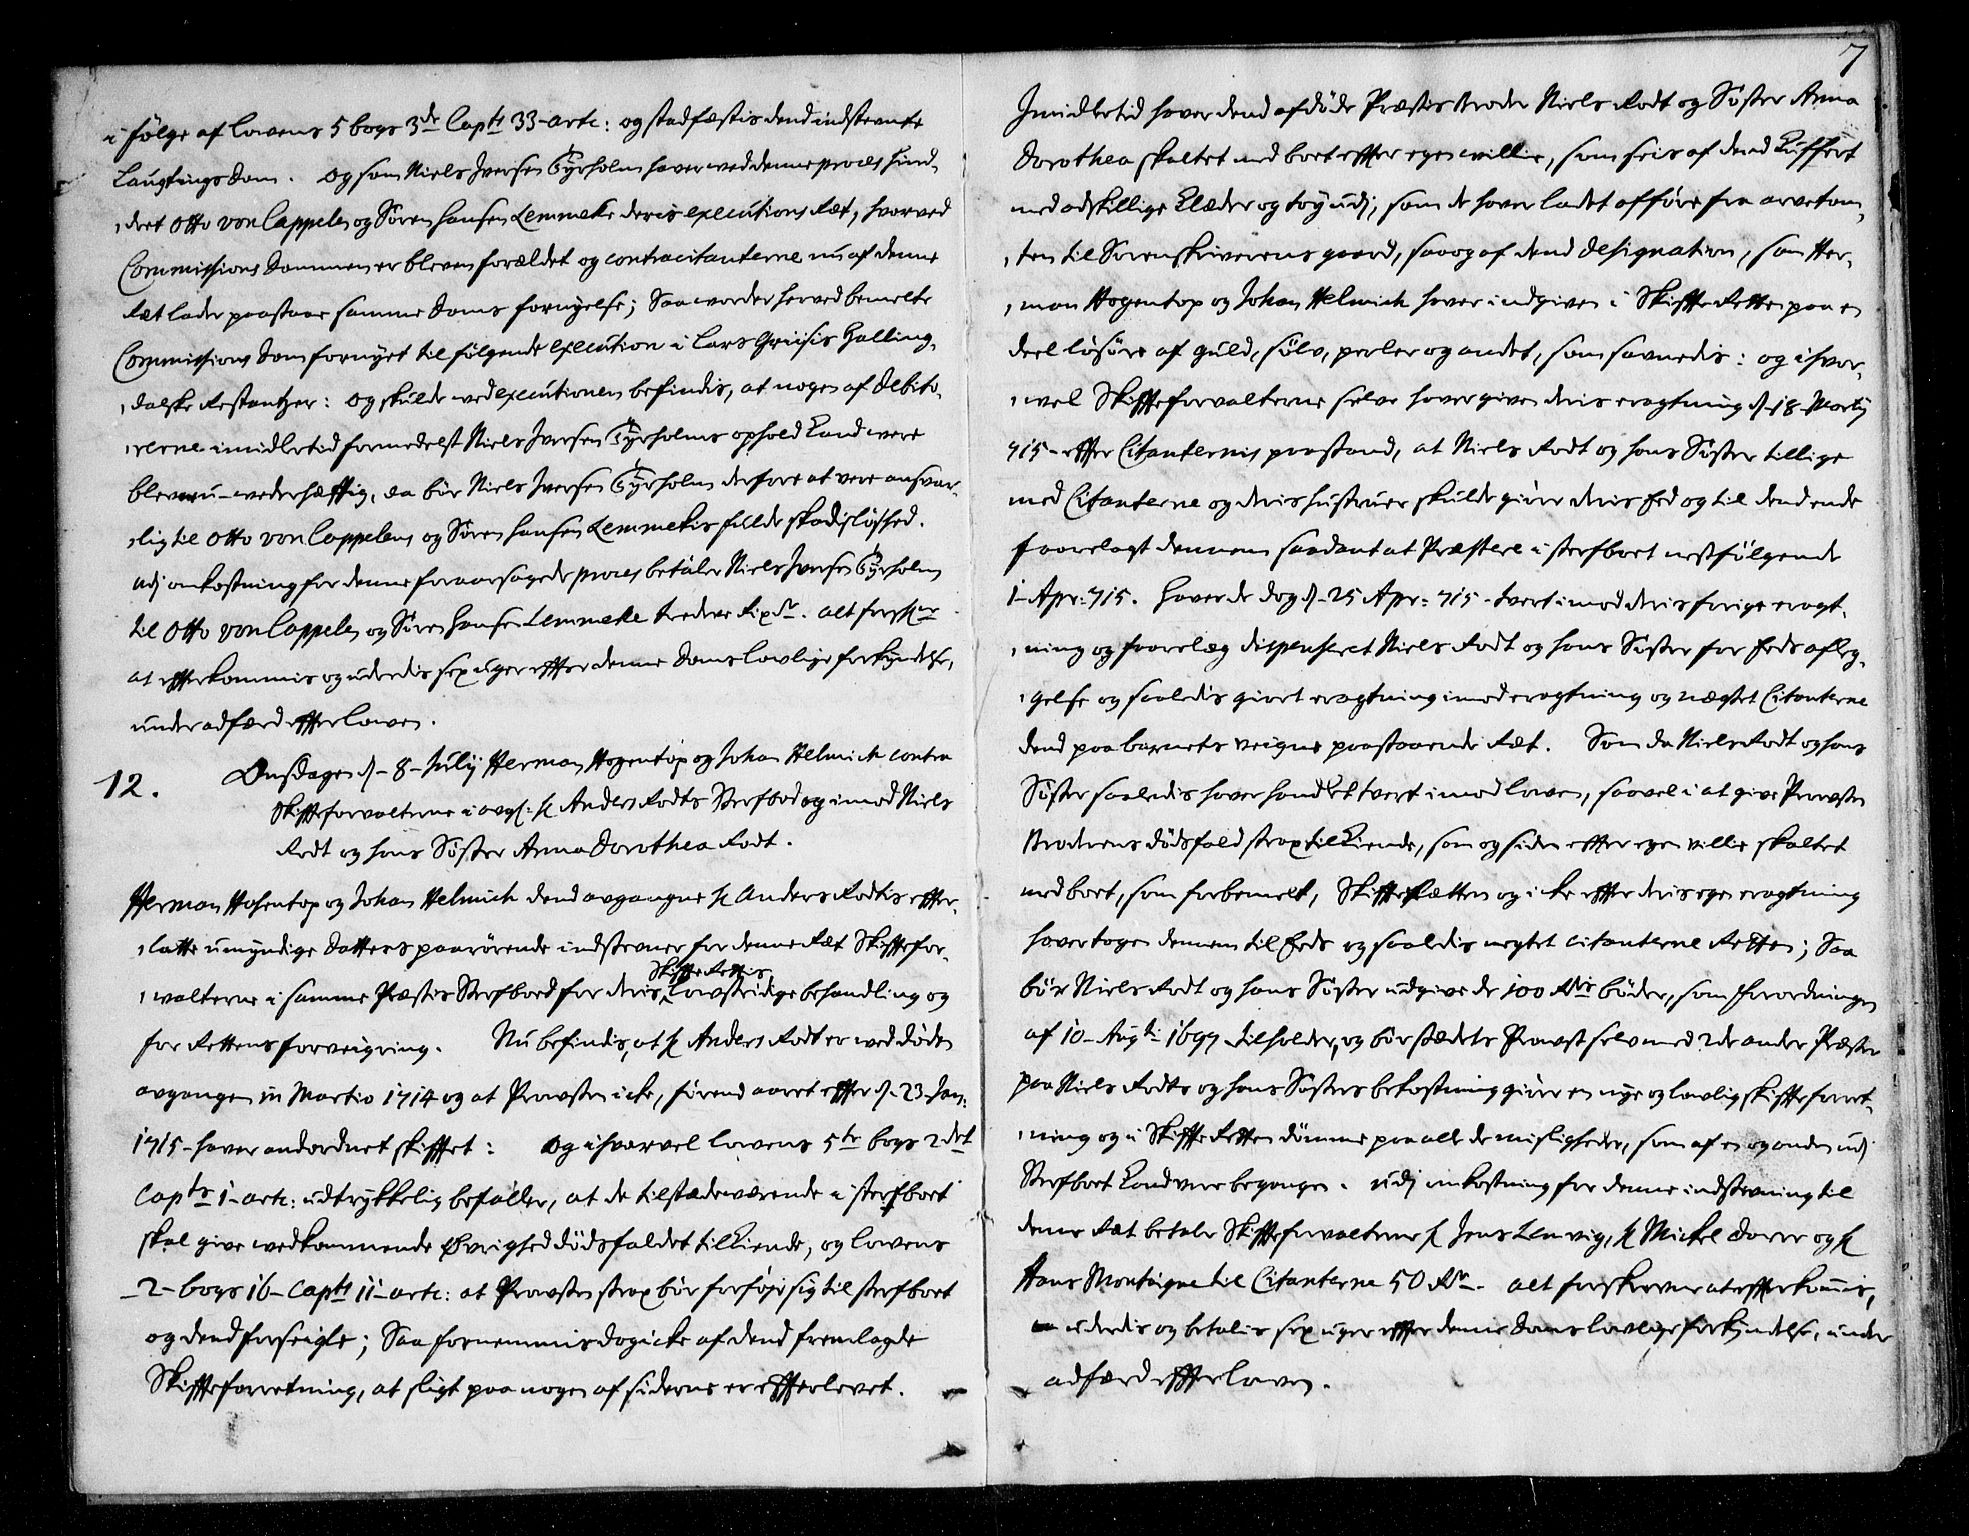 i følge af lovens 5 bogs 3de Capts 33-artc: og stadfæstis dend indstevnte
Laugtings dom. Og som Niels Iversen Tyrholm haver ved denne proces hind-
,dret Otto von Cappelen og Søren Hansen Lemmeke deris executions Ræt, hvorved
Commissions dommen er bleven forældet og contracitanterne nu af denne
Ræt lader paastaae samme doms fornyelse; Saa vorder herved bemelte
Commissions dom fornyet til følgende execution i Lars Gриisis Halling-
,dalske Restantzer: Og skulde ved executionen befindis, at nogen af debito-
,rerne imidlertid formedelst Niels Iversen Tyrholms ophold kand være
bleven u-wederhæfftig, da bør Niels Iversen Tyrholm derfore at være ansvar-
,lig til Otto von Cappelens og Søren Hansen Lemmekis fulde skadisløshed.
udj omkostning for denne foraarsagede proces betaler Niels Iversen Tyrholm
til Otto von Cappelen og Søren Hansen Lemmeke tredeve Rixdr. alt forskr
at efterkommis og uderdis sex uger effter denne doms lovlige forkyndelse,
under adfærd effter loven.
12. Onsdagen d- 8- Julij Herman Hogentop og Johan Helmich contra
Skiffteforvalterne i avg: H Anders Rodts Sterfbod og imod Niels
Rodt og hans Søster Anna Dorothea Rodt.
Herman Hosentop og Johan Helmich dend avgangne H Anders Rodtis effter-
,latte umyndige datters paarørende indstevner for denne Ræt Skifftefor-
Skiffte Rettis
,walterne i samme Præstis Sterfboed for deris lovstridige behandling og
for Rettens forveigring. Nu befindis, at H Anders Rodt er ved døden
avgangen in Martio 1714 og at Provsten icke, førend aaret effter d. 23 Jan:
1715- haver andordnet skifftet: Og ihvorvel lovens 5te bogs 2det
Capts 1- artc: udtrykkelig befaller, at de tilstædeværende i sterfboet
skal give vedkommende Øvrighed dødsfaldet tilkiende, og lovens
-2- bogs 16- Capts 11- artc: at Provsten strax bør forføje sig til sterfboet
og dend forseigle; Saa fornemmis dog icke af dend fremlagde
Skiffteforretning, at sligt paa nogen af siderne er effterlevet.
7
Imidlertid haver dend afdøde Præstis Broder Niels Rodt og Søster Anna
Dorothea skaltet med boet effter egen willie, som seis af dend Kuffert
med adskillige Klæder og tøy udj, som de haver ladet afføre fra arvetom-
,ten til Sorenskriverens gaard, saa og af dend designation, som Her-
,man Hogentop og Johan Helmich haver indgiven i Skiffte Retten paa en
deel løsøre af guld, sølv, perler og andet, som savnedis: og ihvor-
,vel Skiffteforvalterne selve haver given deris eragtning d- 18- Martij
715- effter Citanternis paastand, at Niels Rodt og hans Søster tillige
med Citanterne og deris hustruer skulde giøre deris Eed og til dend ende
foorelagt dennem saadant at præstere i sterfboet nestfølgende
1- Apr: 715. haver de dog d- 25 Apr: 715- tvert imod deris forige eragt-
,ning og foorelæg dispenseret Niels Rodt og hans Søster for Eeds afleg-
,gelse og saaledis giort eragtning imod eragtning og nægtet Citanterne
dend paa barnets veigne paastaaende Ræt. Som da Niels Rodt og hans
Søster saaledis haver handlet tvert imod loven, saavel i at give Provsten
Broderens dødsfald strax tilkiende, som og siden effter egen villie skaltet
med boet, som forbemelt, Skiffte Rætten og icke effter deris egen eragtning
haver tagen dennem til Eeds og saaledis negtet citanterne Retten; Saa
bør Niels Rodt og hans Søster udgive de 100 Rdrs bøder, som forordningen
af 10- Augti 1697 tilholder, og bør stædets Provst selv med 2de andre Præster
paa Niels Rodts og hans Søsters bekostning giøre en nye og lovlig skiffteforret-
,ning og i Skiffte Retten dømme paa alle de misligheder, som af en og anden udj
Sterfboet kand være begangen. udj omkostning for denne indstevning til
denne Ræt betaler Skiffteforvalterne H Jens Lemvig, H Mickel Dorer og H
Hans Montaigne til Citanterne 50 Rdr- alt forskrevne at effterkommis,
uderdis og betalis sex uger effter denne doms lovlige forkyndelse, under
adfærd effter loven.